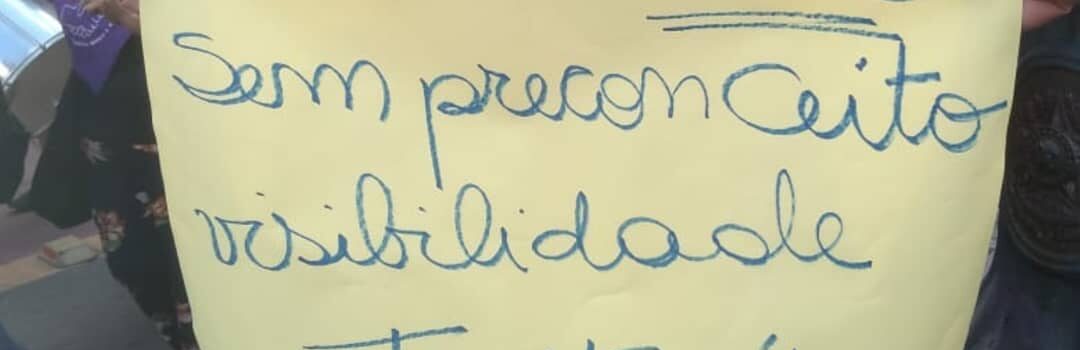 Sem preconceito
visibilidade